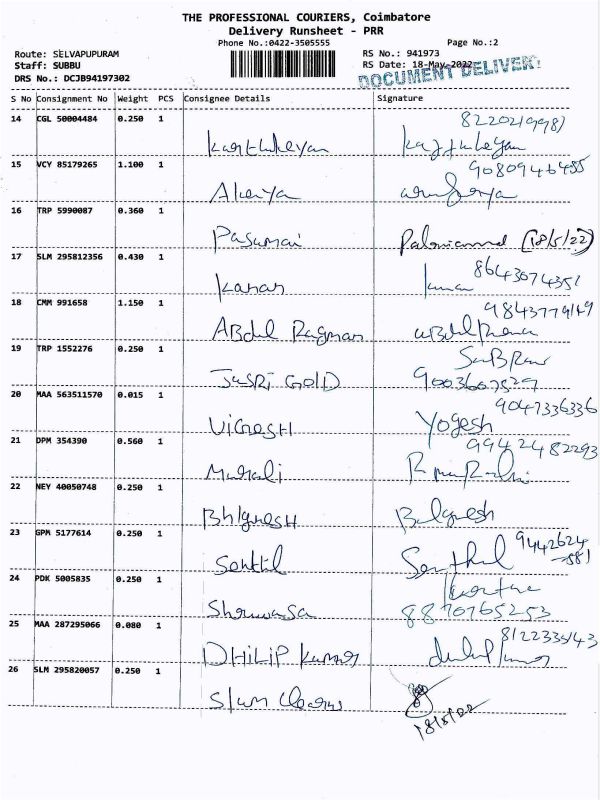 THE PROFESSIONAL COURIERS, Coimbatore
Delivery Runsheet - PRR
Phone No.:0422-3505555
Page No.:2
Route: SELVAPUPURAM
RS No.: 941973
Staff: SUBBU
RS Date: 18-May-2022
DRS No.: DCJB94197302
DOCUMENT DELIVERY
S No Consignment No Weight PCS Consignee Details Signature
14 CGL 50004484 0.250 1
Karthikeyan
15 VCY 85179265 1.100 1
9080946455
16 TRP 5990087 0.360 1
Pasumai (18/5/22)
17 SLM 295812356 0.430 1
8643074351
18 CMM 991658 1.150 1
Abdul
19 TRP 1552276 0.250 1
GOLD
20 MAA 563511570 0.015 1
9047336336
VIGNESH Yogesh
21 DPM 354390 0.560 1
9942482293
Murali
22 NEY 40050748 0.250 1
23 GPM 5177614 0.250 1
9442624
-581
Senthil Senthil
24 PDK 5005835 0.250 1
8870765253
25 MAA 287295066 0.080 1
DHILIP Kumar
26 SLM 295820057 0.250 1
18/5/22